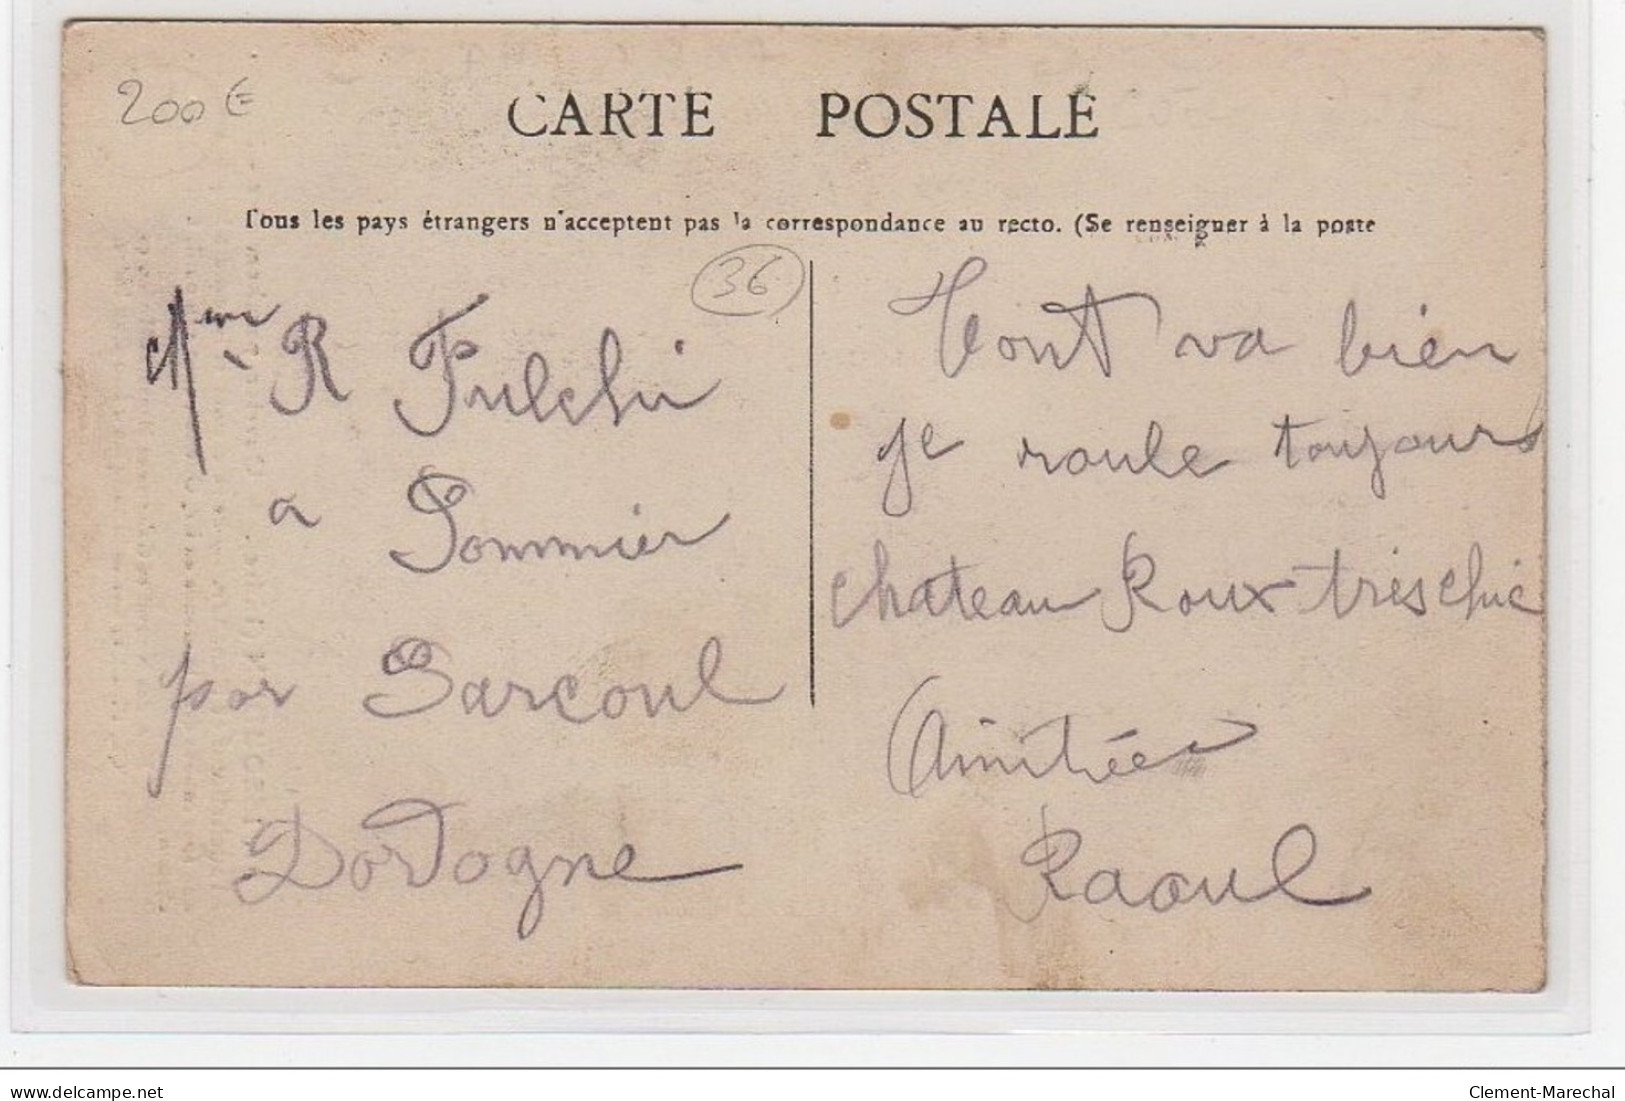 200 €
CARTE POSTALE
Tous les pays étrangers n'acceptent pas la correspondance au recto. (Se renseigner à la poste
36
Mme R Fulchi
a Sommier
par Sarcoul
Dordogne
Tout va bien
je roule toujours
chateau Roux tres chic
Amitiées
Raoul
delcampe.net
Clement-Marechal